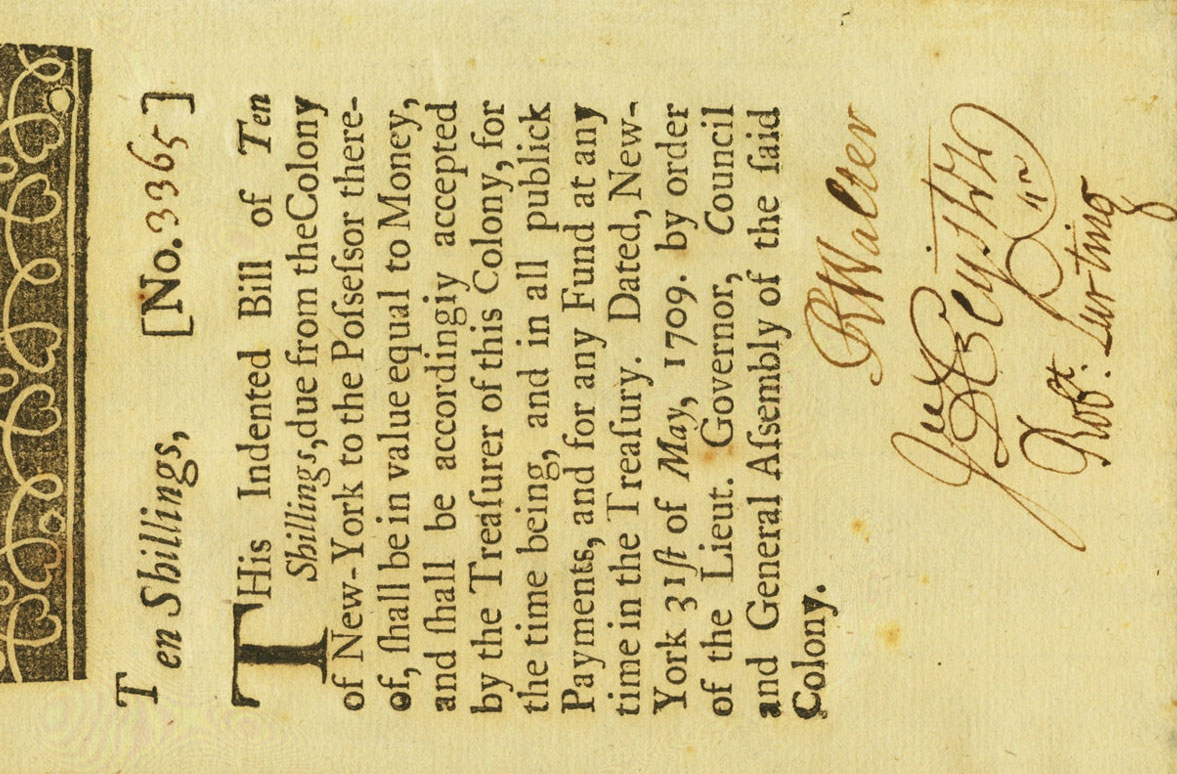 Ten Shillings, [No. 3365]
THis Indented Bill of Ten
Shillings, due from the Colony
of New-York to the Poſeſsor there-
of, ſhall be in value equal to Money,
and ſhall be accordingiy accepted
by the Treaſurer of this Colony, for
the time being, and in all publick
Payments, and for any Fund at any
time in the Treaſury. Dated, New-
York 31ſt of May, 1709. by order
of the Lieut. Governor, Council
and General Aſsembly of the ſaid
Colony.
R Walter
Robt. Lurting